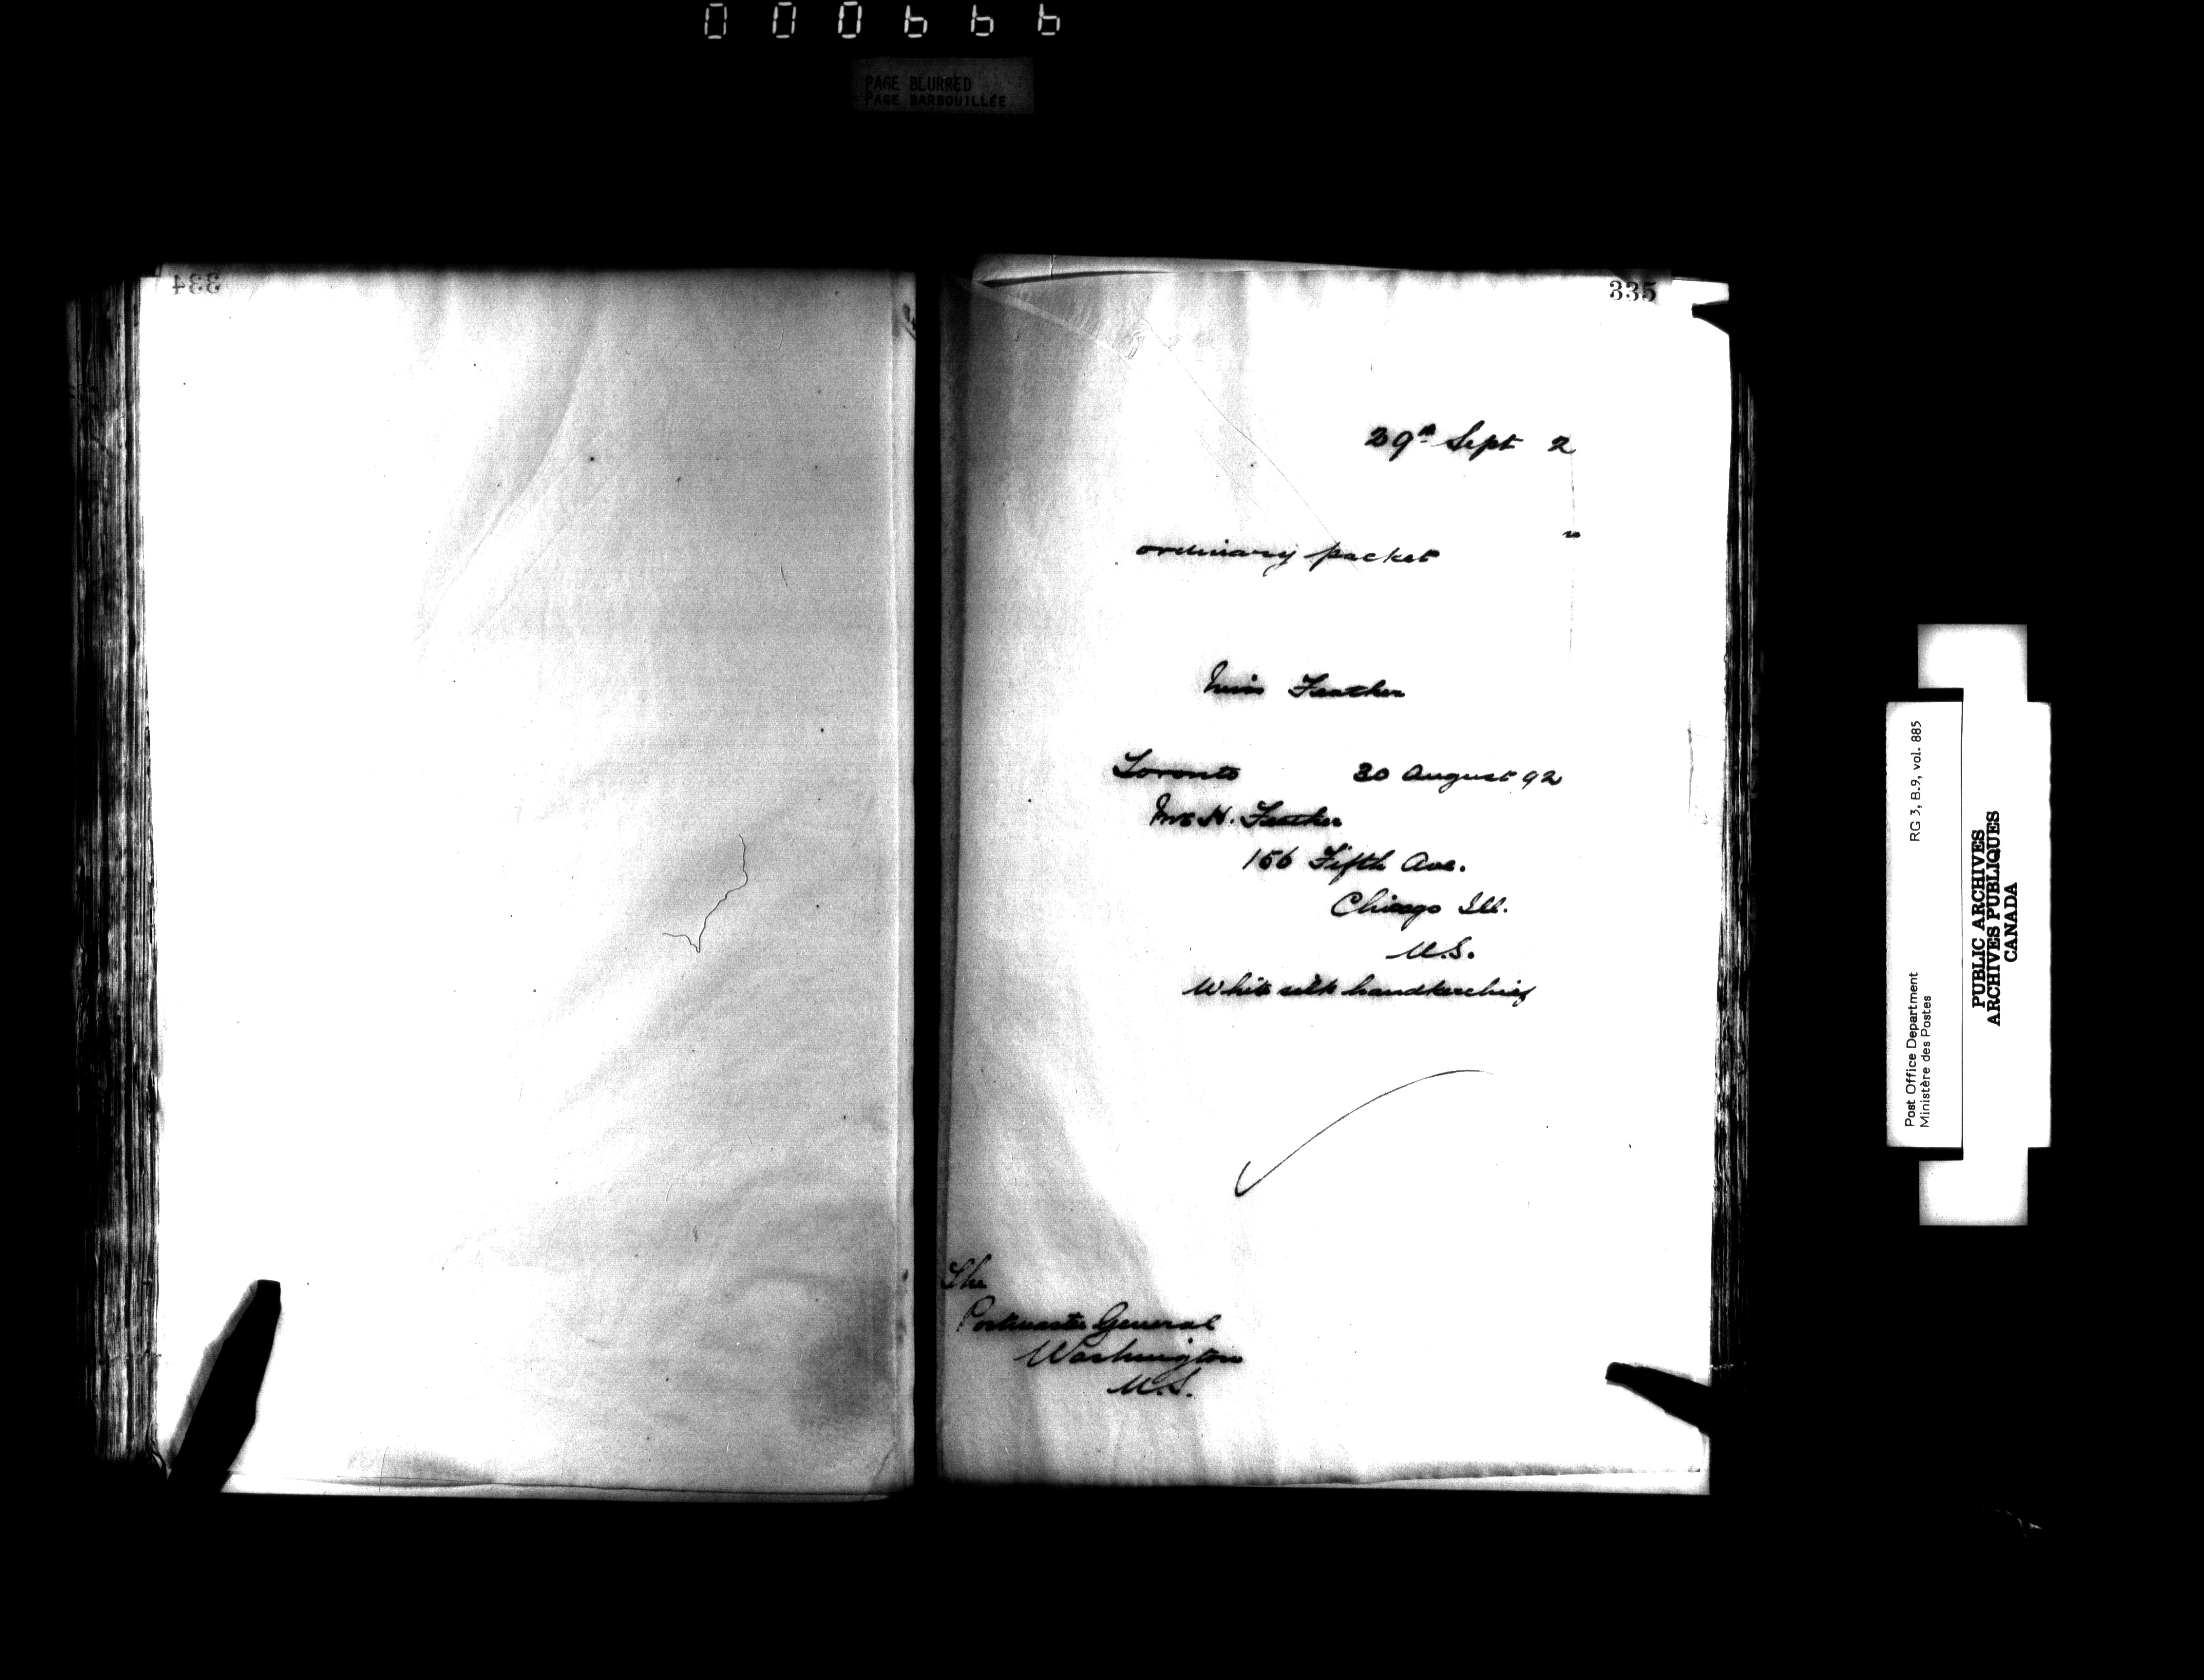 000666
PAGE BLURRED
PAGE BARBOUILLÉE
334
335
29th Sept 2
"
ordinary packet
Miss Feather
Toronto 30 August 92
Mr H. Feather
156 Fifth Ave.
Chicago Ill.
U.S.
White silk handkerchief
The
Postmaster General
Washington
U.S.
Post Office Department
Ministère des Postes
RG 3, B.9, vol. 885
PUBLIC ARCHIVES
ARCHIVES PUBLIQUES
CANADA